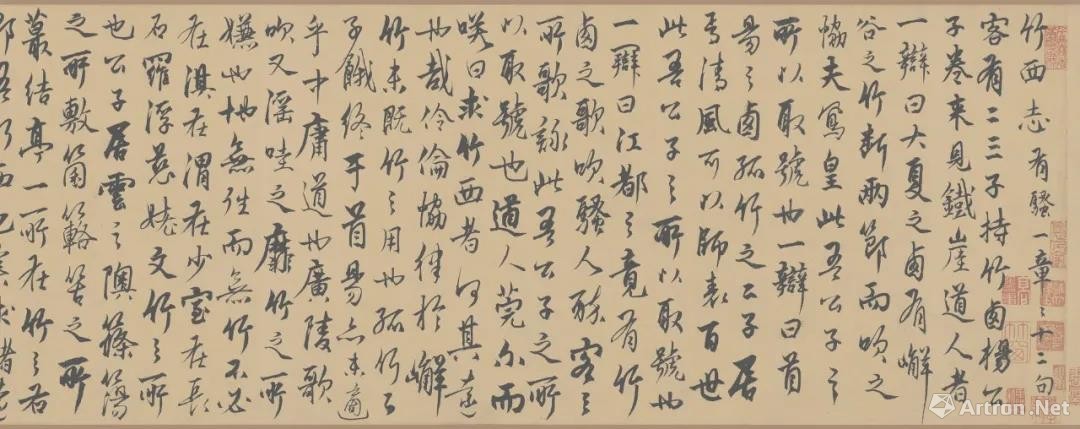 竹西志 有騷一章章十二句
客有二三子持竹卤楊公
子卷来見鐵崖道人者
一辯曰大夏之卤有嶰
谷之竹断兩節而吹之
協夫鳳皇此吾公子之
所以取號也一辯曰首
昜之卤孤竹之二子居
焉清風可以師表百世
此吾公子之所以取號也
一辯曰江都之竟有竹
卤之歌吹騷人醉客之
所歌詠此吾公子之所
以取號也道人莞尔而
咲曰求竹西者何其遠
也哉伶倫協律於嶰
竹未既竹之用也孤竹之
子餓終于首昜亦未適
乎中庸道也廣陵歌
吹又淫哇之靡竹之所
嫌也地無往而無竹不必
在淇在渭在少室在長
石羅浮慈姥文竹之所
也公子居雲之隩篠簜
之所敷箘簬笴之所
蕞結亭一所在竹之右
Artron.Net